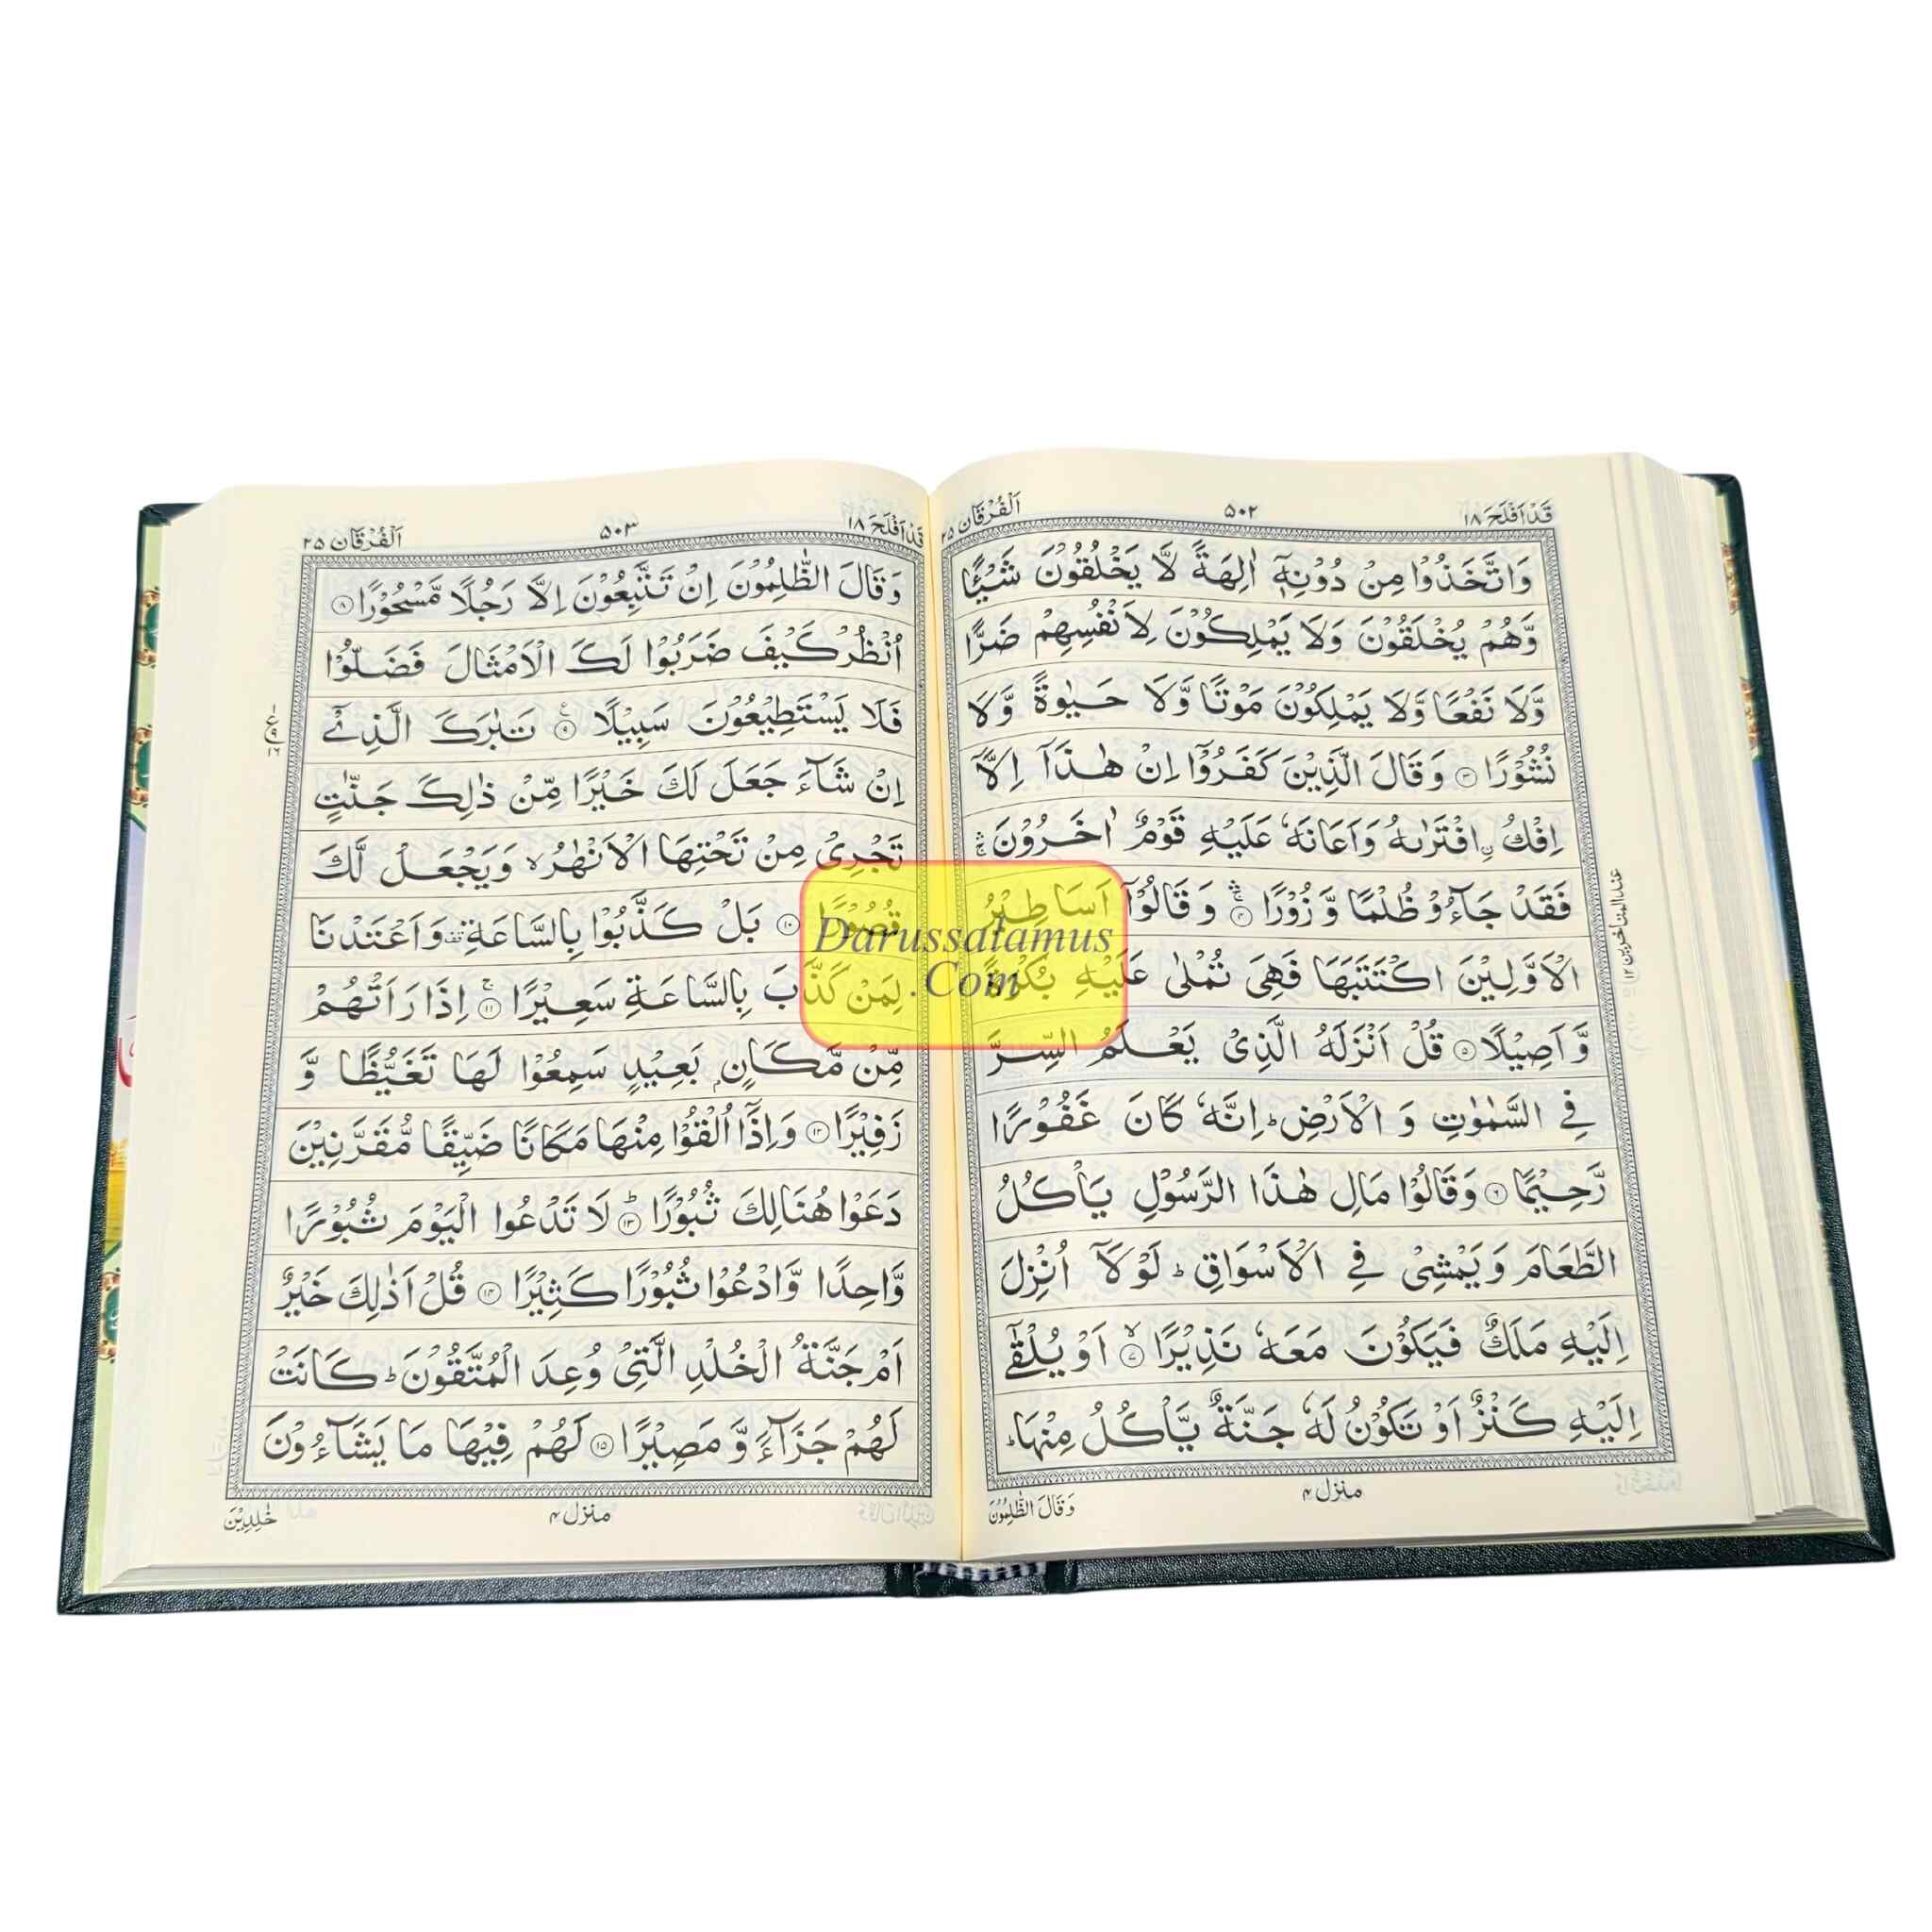 قَدْ اَفْلَحَ ١٨
٥٠٢
اَلْفُرْقَان ٢٥
وَاتَّخَذُوْا مِنْ دُوْنِهٖۤ اٰلِهَةً لَّا يَخْلُقُوْنَ شَيْـًٔا
وَّهُمْ يُخْلَقُوْنَ وَلَا يَمْلِكُوْنَ لِاَنْفُسِهِمْ ضَرًّا
وَّلَا نَفْعًا وَّلَا يَمْلِكُوْنَ مَوْتًا وَّلَا حَيٰوةً وَّلَا
نُشُوْرًا ۝٣ وَقَالَ الَّذِيْنَ كَفَرُوْۤا اِنْ هٰذَاۤ اِلَّاۤ
اِفْكُ ۨافْتَرٰىهُ وَاَعَانَهٗ عَلَيْهِ قَوْمٌ اٰخَرُوْنَ ۛۚ
فَقَدْ جَآءُوْ ظُلْمًا وَّ زُوْرًا ۝٤ۛۚ وَ قَالُوْۤا اَسَاطِيْرُ
الْاَوَّلِيْنَ اكْتَتَبَهَا فَهِيَ تُمْلٰى عَلَيْهِ بُكْرَةً
وَّ اَصِيْلًا ۝٥ قُلْ اَنْزَلَهُ الَّذِيْ يَعْلَمُ السِّرَّ
فِي السَّمٰوٰتِ وَ الْاَرْضِ ؕ اِنَّهٗ كَانَ غَفُوْرًا
رَّحِيْمًا ۝٦ وَقَالُوْا مَالِ هٰذَا الرَّسُوْلِ يَاْكُلُ
الطَّعَامَ وَ يَمْشِيْ فِي الْاَسْوَاقِ ؕ لَوْلَاۤ اُنْزِلَ
اِلَيْهِ مَلَكٌ فَيَكُوْنَ مَعَهٗ نَذِيْرًا ۝٧ۙ اَوْ يُلْقٰۤى
اِلَيْهِ كَنْزٌ اَوْ تَكُوْنُ لَهٗ جَنَّةٌ يَّاْكُلُ مِنْهَا ؕ
منزل ٤
وَقَالَ الظّٰلِمُوْنَ
قَدْ اَفْلَحَ ١٨
٥٠٣
اَلْفُرْقَان ٢٥
وَقَالَ الظّٰلِمُوْنَ اِنْ تَتَّبِعُوْنَ اِلَّا رَجُلًا مَّسْحُوْرًا ۝٨
اُنْظُرْ كَيْفَ ضَرَبُوْا لَكَ الْاَمْثَالَ فَضَلُّوْا
فَلَا يَسْتَطِيْعُوْنَ سَبِيْلًا ۝٩ؑ تَبٰرَكَ الَّذِيْۤ
اِنْ شَآءَ جَعَلَ لَكَ خَيْرًا مِّنْ ذٰلِكَ جَنّٰتٍ
تَجْرِيْ مِنْ تَحْتِهَا الْاَنْهٰرُ ۙ وَيَجْعَلْ لَّكَ
قُصُوْرًا ۝١٠ بَلْ كَذَّبُوْا بِالسَّاعَةِ وَاَعْتَدْنَا
لِمَنْ كَذَّبَ بِالسَّاعَةِ سَعِيْرًا ۝١١ۚ اِذَا رَاَتْهُمْ
مِّنْ مَّكَانٍۭ بَعِيْدٍ سَمِعُوْا لَهَا تَغَيُّظًا وَّ
زَفِيْرًا ۝١٢ وَاِذَاۤ اُلْقُوْا مِنْهَا مَكَانًا ضَيِّقًا مُّقَرَّنِيْنَ
دَعَوْا هُنَالِكَ ثُبُوْرًا ۝١٣ؕ لَا تَدْعُوا الْيَوْمَ ثُبُوْرًا
وَّاحِدًا وَّادْعُوْا ثُبُوْرًا كَثِيْرًا ۝١٤ قُلْ اَذٰلِكَ خَيْرٌ
اَمْ جَنَّةُ الْخُلْدِ الَّتِيْ وُعِدَ الْمُتَّقُوْنَ ؕ كَانَتْ
لَهُمْ جَزَآءً وَّ مَصِيْرًا ۝١٥ لَهُمْ فِيْهَا مَا يَشَآءُوْنَ
منزل ٤
خٰلِدِيْنَ
Darussalamus
.Com